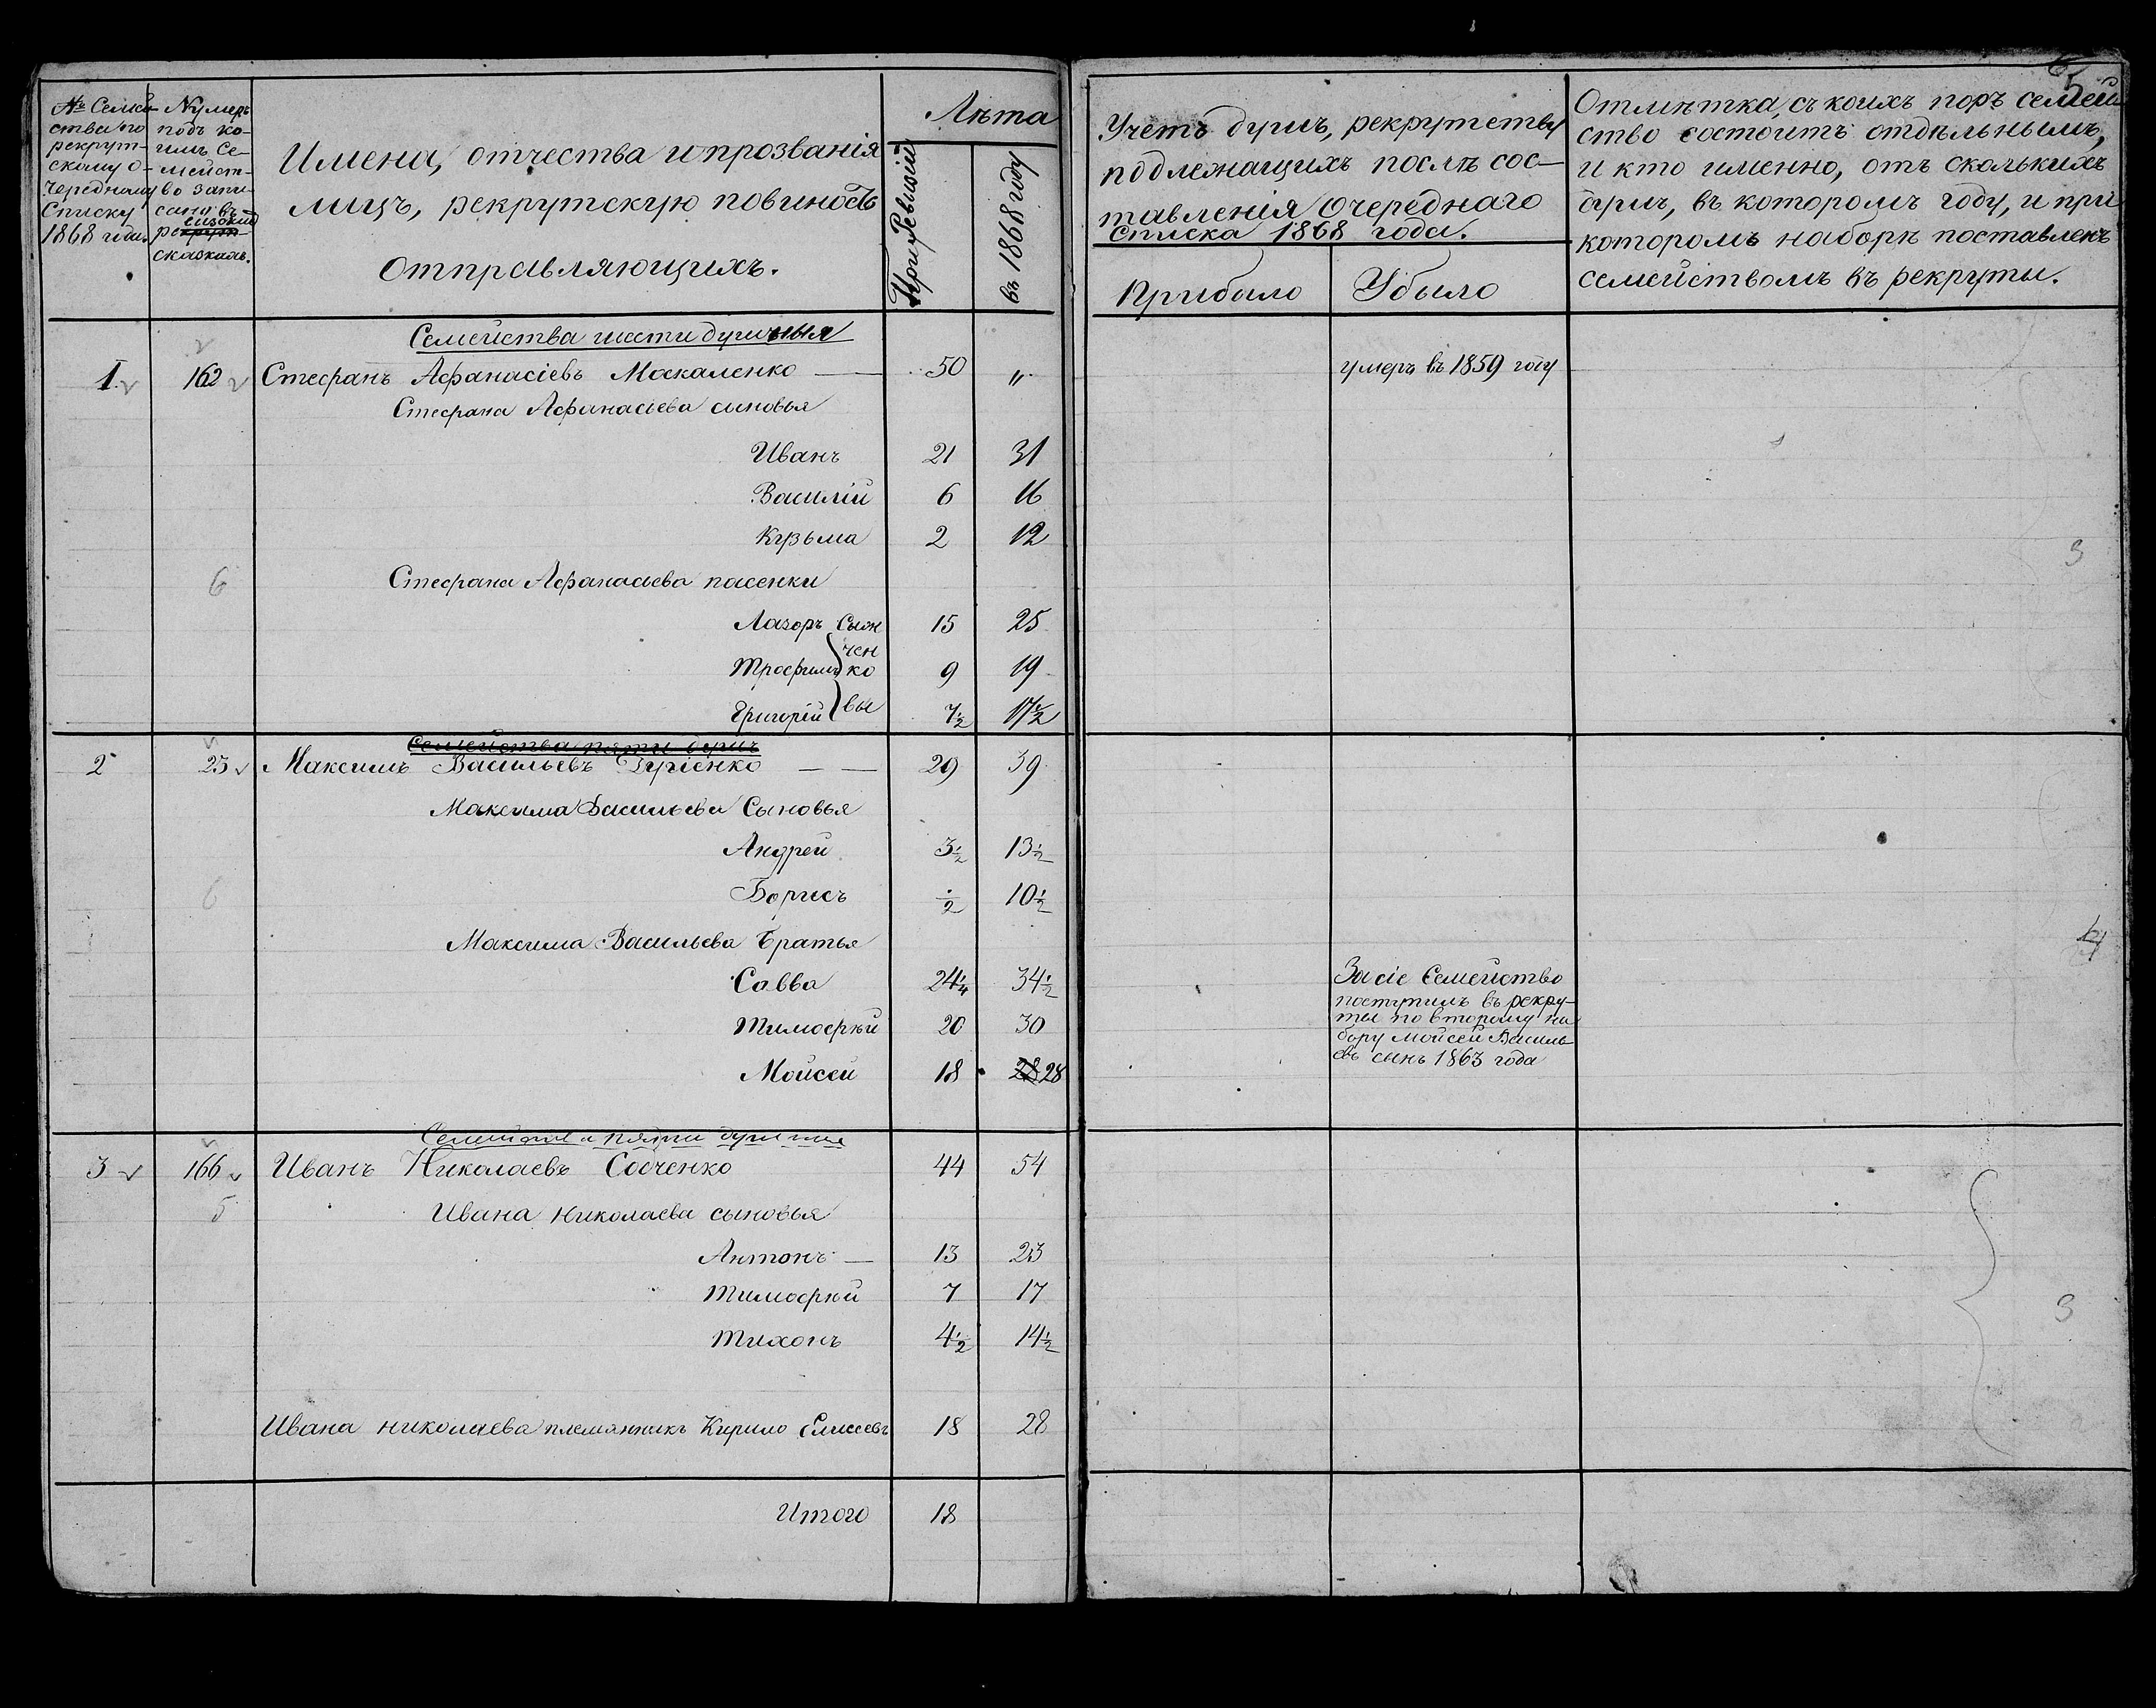 № Семей-
ства по
рекрут-
скому о-
чередному
Списку
1868 года.
Нумеръ
подъ ко-
имъ Се-
мейст-
во запи-
сано въ
ревизской
рекрут-
сказкахъ.
Имена, отчества и прозванія
лицъ, рекрутскую повиность
отправляющихъ.
Лѣта
При Ревизіи
въ 1868 году
Учетъ душъ, рекрутству
подлежащихъ послѣ сос-
тавленія Очереднаго
списка 1868 года.
Прибыло
Убыло
5
Отмѣтка, съ коихъ поръ семей-
ство состоитъ отдѣльнымъ,
и кто именно, отъ сколькихъ
душъ, въ которомъ году, и при
которомъ наборѣ поставленъ
семействомъ въ рекруты.
Семейства шести душныя
1. 162 Стефанъ Афанасіевъ Макаленко — 50 „ умеръ въ 1859 году
Стефана Афанасіева сыновья
Иванъ 21 31
Василій 6 16
Кузьма 2 12
3
6 Стефана Афанасьева пасенки
Лазоръ Сыч 15 25
чен
Трофимъ ко 9 19
Григорій вы 7½ 17½
Семейства пяти душъ
2 23 Максимъ Васильевъ — — 29 39
Максима Васильева Сыновья
Андрей 3½ 13½
6 Борисъ ½ 10½
Максима Васильева Братья
4
Савва 24¼ 34½
Тимофѣй 20 30
Мойсей 18 28 28
За сіе Семейство
поступилъ въ рекру-
ты по второму на
бору Мойсей Василь
евъ сынъ 1863 года
Семейства пяти душныя
3 166 Иванъ Николаевъ Сосченко 44 54
5 Ивана Николаева сыновья
Антонъ — 13 23
Тимофѣй 7 17
3
Тихонъ 4½ 14½
Ивана Николаева племянникъ Кирило Елисеевъ 18 28
Итого 18